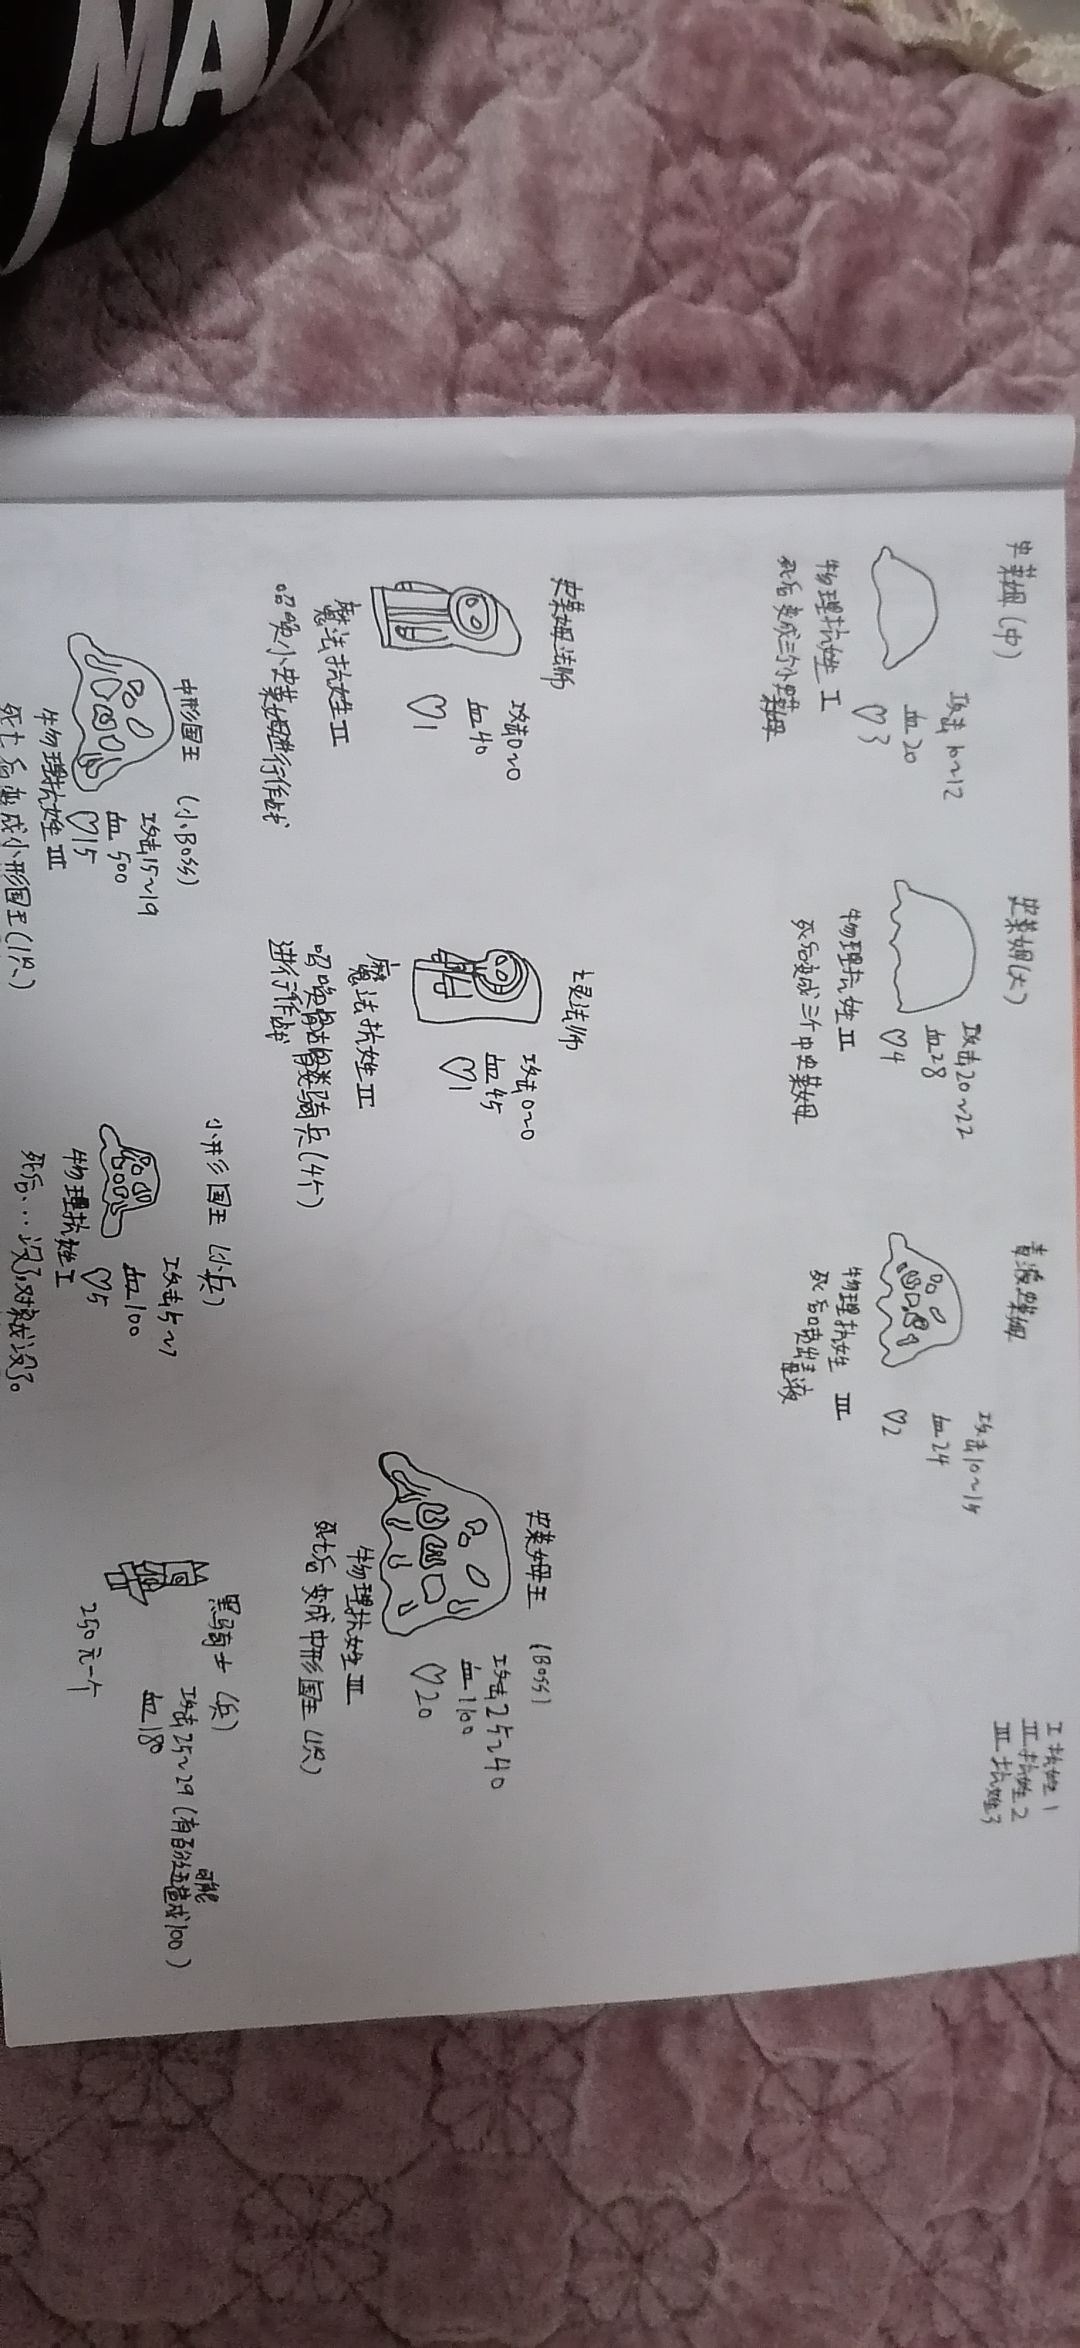 MA
I 抗性 1
II 抗性 2
III 抗性 3
史莱姆（中）
攻击 10~12
血 20
♡3
物理抗性 I
死后变成三个小史莱姆
史莱姆（大）
攻击20~22
血28
♡4
物理抗性 II
死后变成三个中史莱姆
毒液史莱姆
攻击10~15
血24
♡2
物理抗性 III
死后喷出毒液
史莱姆法师
攻击0~0
血40
♡1
魔法抗性 II
召唤小史莱姆进行作战
法师
攻击0~0
血45
♡1
魔法抗性 III
召唤骷髅类骑兵（4个）
进行作战
史莱姆王 （Boss）
攻击25~40
血1100
♡20
物理抗性 III
死亡后变成中形国王（1只）
中形国王 （小Boss）
攻击15~19
血500
♡15
物理抗性 III
死亡后变成小形国王（1只）
小形国王（小兵）
攻击5~7
血100
♡5
物理抗性 I
死后...没了,对就没了。
黑骑士 （兵）
攻击25~29（有可能造成100）
血180
250元一个